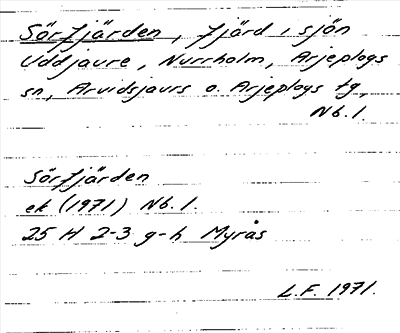 Sörfjärden, fjärd i sjön
Uddjaure, Nurrholm, Arjeplogs
sn, Arvidsjaurs o. Arjeplogs tg,
Nb. l.
Sörfjärden
ek (1971) Nb. l.
25 H 2-3 g-h Myrås
L.F. 1971.